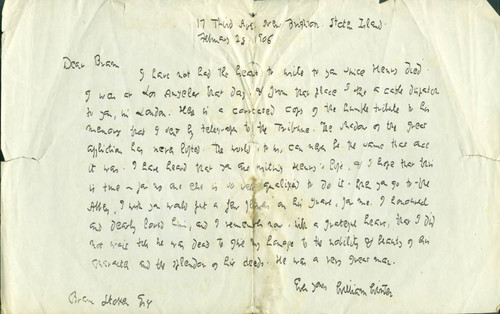 17 Third Ave. New Brighton Staten Island.
February 28, 1906
Dear Bram
I have not had the heart to write to you since Henry died.
I was at Los Angeles that day, & from that place I sent a cable dispatch
to you, in London. Here is a corrected copy of the humble tribute to his
memory that I sent by telegraph to the Tribune. The shadow of the great
affliction has never lifted. The world to us, can never be the same that once
it was. I have heard that you are writing Henry's Life, & I hope that this
is true – for no one else is so well qualified to do it. When you go to the
Abbey, I wish you would put a few flowers on his grave, for me. I honoured
and dearly loved him, and I remember now, with a grateful heart, that I did
not wait till he was dead to give my homage to the nobility & beauty of his
character and the splendor of his deeds. He was a very great man.
Ever yours William Winter
Bram Stoker Esq